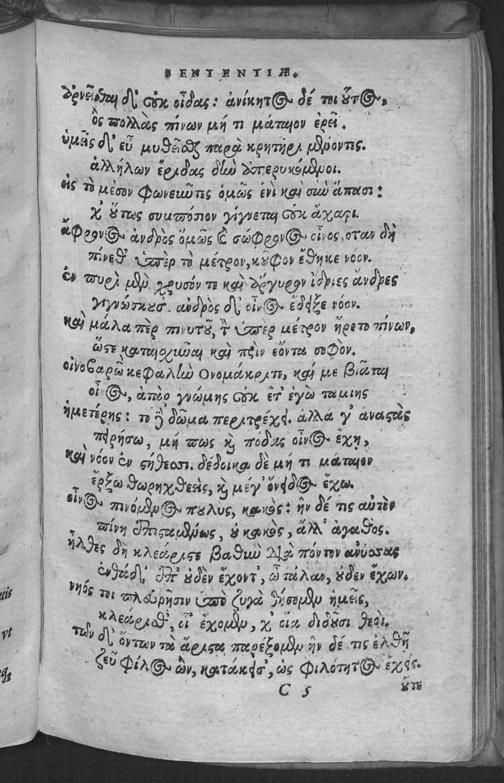 SENTENTIÆ.
ἀρνεῖσθαι δ' οὐκ οἶδας: ἀνίκητος δέ τοι οὗτος,
ὃς πολλὰς πίνων μή τι μάταιον ἐρεῖ.
ὑμεῖς δ' εὖ μυθεῖσθε παρὰ κρητῆρι μένοντες,
ἀλλήλων ἔριδας δὴν ἀπερυκόμενοι.
εἰς τὸ μέσον φωνεῦντες ὁμῶς ἑνὶ καὶ σὺν ἅπασι:
χ' οὕτως συμπόσιον γίγνεται οὐκ ἄχαρι.
ἄφρονος ἀνδρὸς ὁμῶς καὶ σώφρονος οἶνος, ὅταν δὴ
πίνεθ' ὑπὲρ τὸ μέτρον, κοῦφον ἔθηκε νοον.
ἐν πυρὶ μὲν χρυσόν τε καὶ ἄργυρον ἴδριες ἄνδρες
γιγνώσκουσ'. ἀνδρὸς δ' οἶνος ἔδειξε νόον.
καὶ μάλα περ πινυτοῦ, τὸ ὑπὲρ μέτρον ἤρετο πίνων,
ὥστε καταισχῦναι καὶ πρὶν ἐόντα σοφὸν.
οἰνοβαρῶ κεφαλὴν Ονομάκριτε, καί με βιᾶται
οἶνος, ἀτὰρ γνώμης οὐκ ἔτ' ἐγὼ ταμιης
ἡμετέρης: τὸ δὲ δῶμα περιτρέχει. ἀλλά γ' ἀναστὰς
πειρήσω, μή πως καὶ πόδας οἶνος ἔχη,
καὶ νόον ἐν στήθεσι. δέδοικα δὲ μή τι μάταιον
ἔρξω θωρηχθεὶς, καὶ μέγ' ὄνειδος ἔχω.
οἶνος πινόμενος πουλὺς, κακὸς: ἢν δέ τις αὐτὸν
πίνη ἐπισταμένως, οὐ κακὸς, ἀλλ' ἀγαθός.
ἦλθες δὴ κλεάριστε βαθὺν διὰ πόντον ἀνύσσας
ἐνθάδ' ἐπ' οὐδὲν ἔχοντ', ὦ τάλαν, οὐδὲν ἔχων.
νηός τοι πλευρῇσιν ὑπὸ ζυγὰ θήσομεν ἡμεῖς,
κλεάρισθ', οἷ' ἔχομεν, χ' οἷα διδοῦσι θεοί.
τῶν δ' ὄντων τὰ ἄριστα παρέξομεν ἢν δέ τις ἔλθη
ζεῦ φίλος ὢν, κατάκεισ', ὡς φιλότητος ἔχεις.
C 5 οὔτε